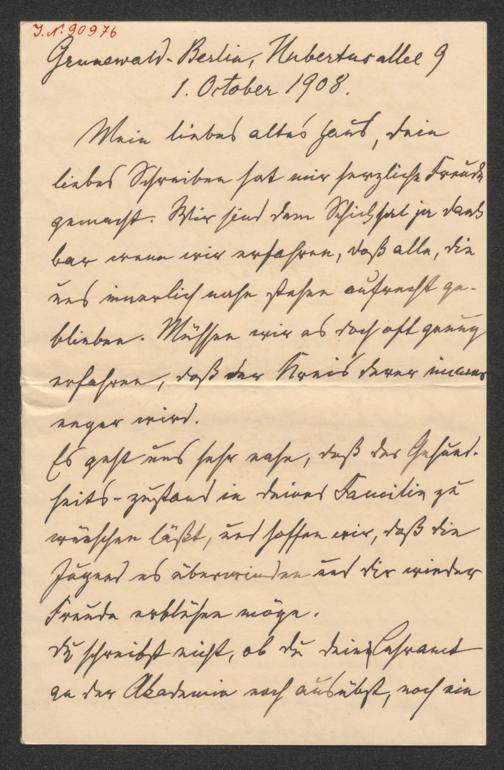 J. N. 90976
Grunewald-Berlin, Hubertusallee 9
1. October 1908.
Mein liebes altes Haus, dein
liebes Schreiben hat mir herzliche Freude
gemacht. Wir sind dem Schicksal ja dank
bar wenn wir erfahren, daß alle, die
uns innerlich nahe stehen aufrecht ge-
blieben. Müssen wir es doch oft genug
erfahren, daß der Kreis derer immer
enger wird.
Es geht uns sehr nahe, daß der Gesund-
heits-zustand in deiner Familie zu
wünschen läßt, und hoffen wir, daß die
Jugend es überwinden und dir wieder
Freude erblühen möge.
Du schreibst nicht, ob du dein Lehramt
an der Akademie noch ausübst, noch ein